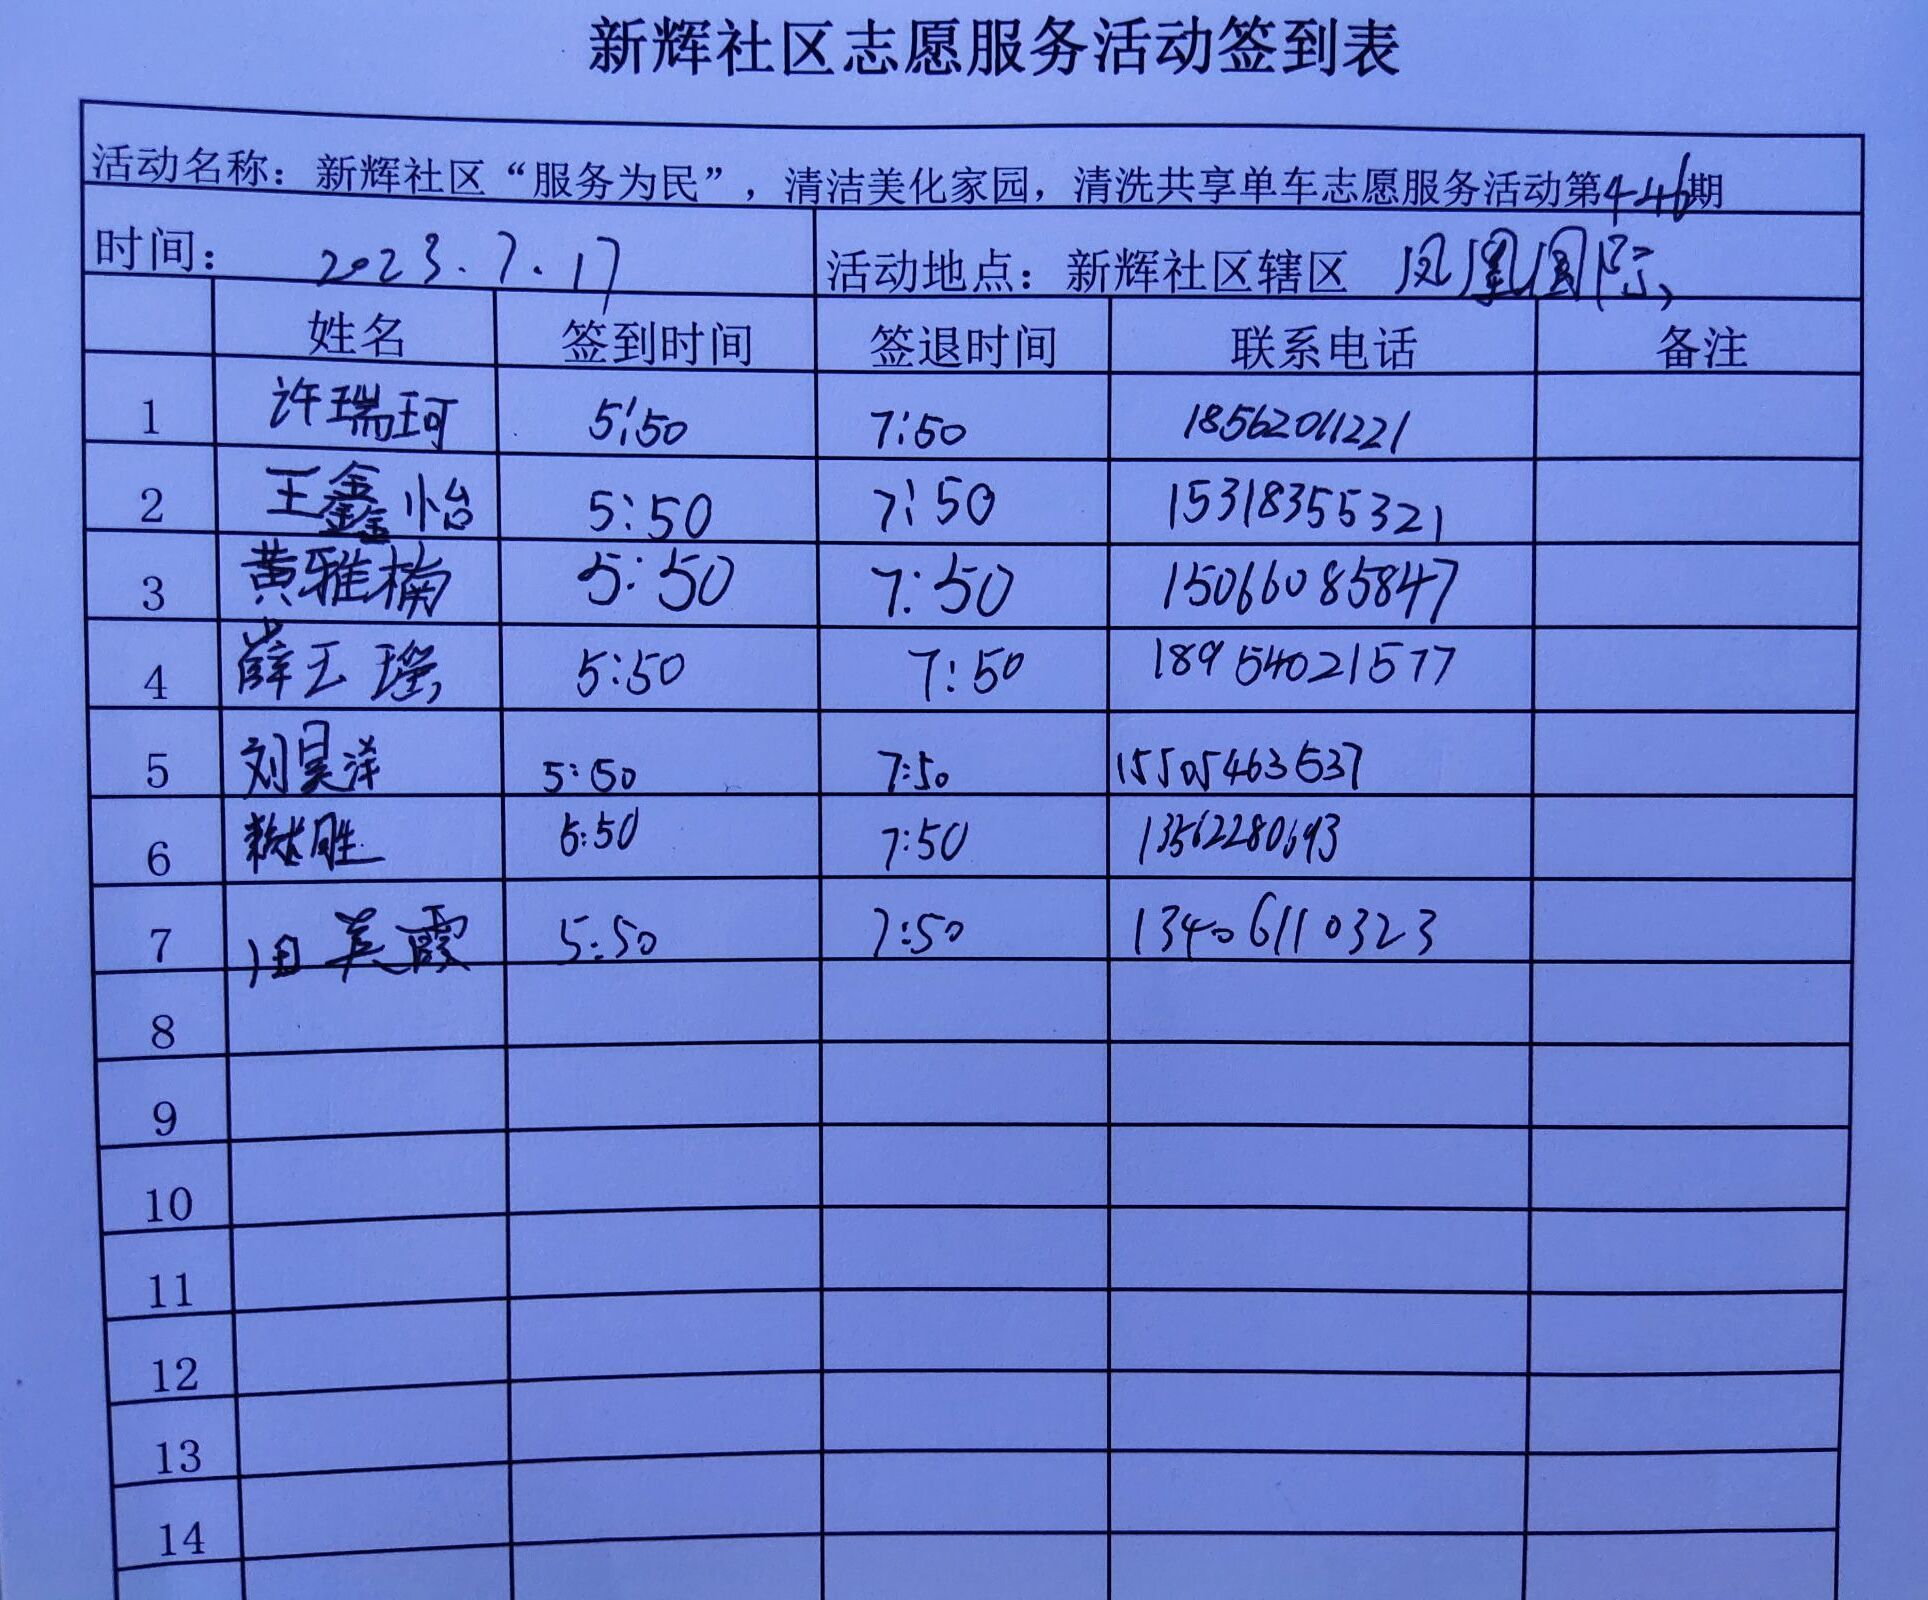 新辉社区志愿服务活动签到表
活动名称：新辉社区“服务为民”，清洁美化家园，清洗共享单车志愿服务活动第446期
时间： 2023.7.17 活动地点：新辉社区辖区 凤凰国际
姓名 签到时间 签退时间 联系电话 备注
1 许瑞珂 5:50 7:50 18562011221
2 王鑫怡 5:50 7:50 15318355321
3 黄雅楠 5:50 7:50 15066085847
4 薛玉瑶 5:50 7:50 18954021577
5 刘昊洋 5:50 7:50 15505463537
6 5:50 7:50 13562280693
7 田美霞 5:50 7:50 13406110323
8
9
10
11
12
13
14